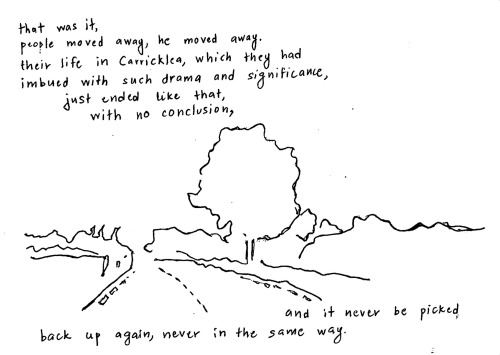 that was it,
people moved away, he moved away.
their life in Carricklea, which they had
imbued with such drama and significance,
just ended like that,
with no conclusion,
and it never be picked
back up again, never in the same way.